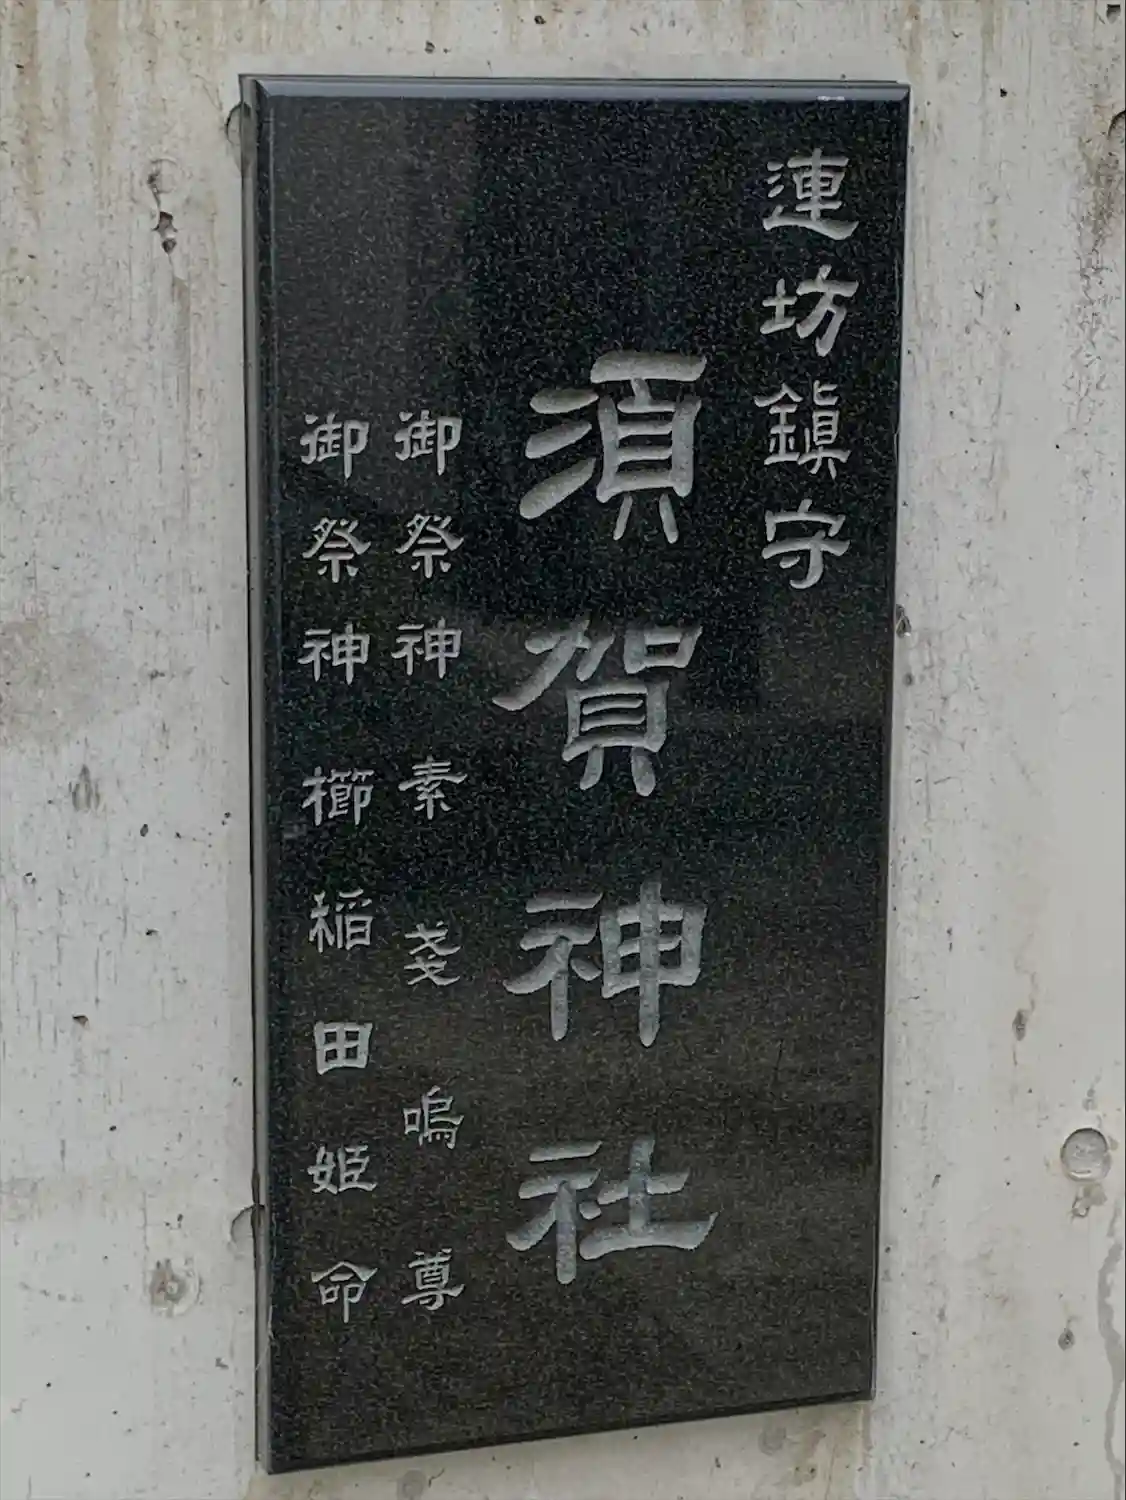 連坊鎮守
須賀神社
御祭神素戔嗚尊
御祭神櫛稲田姫命